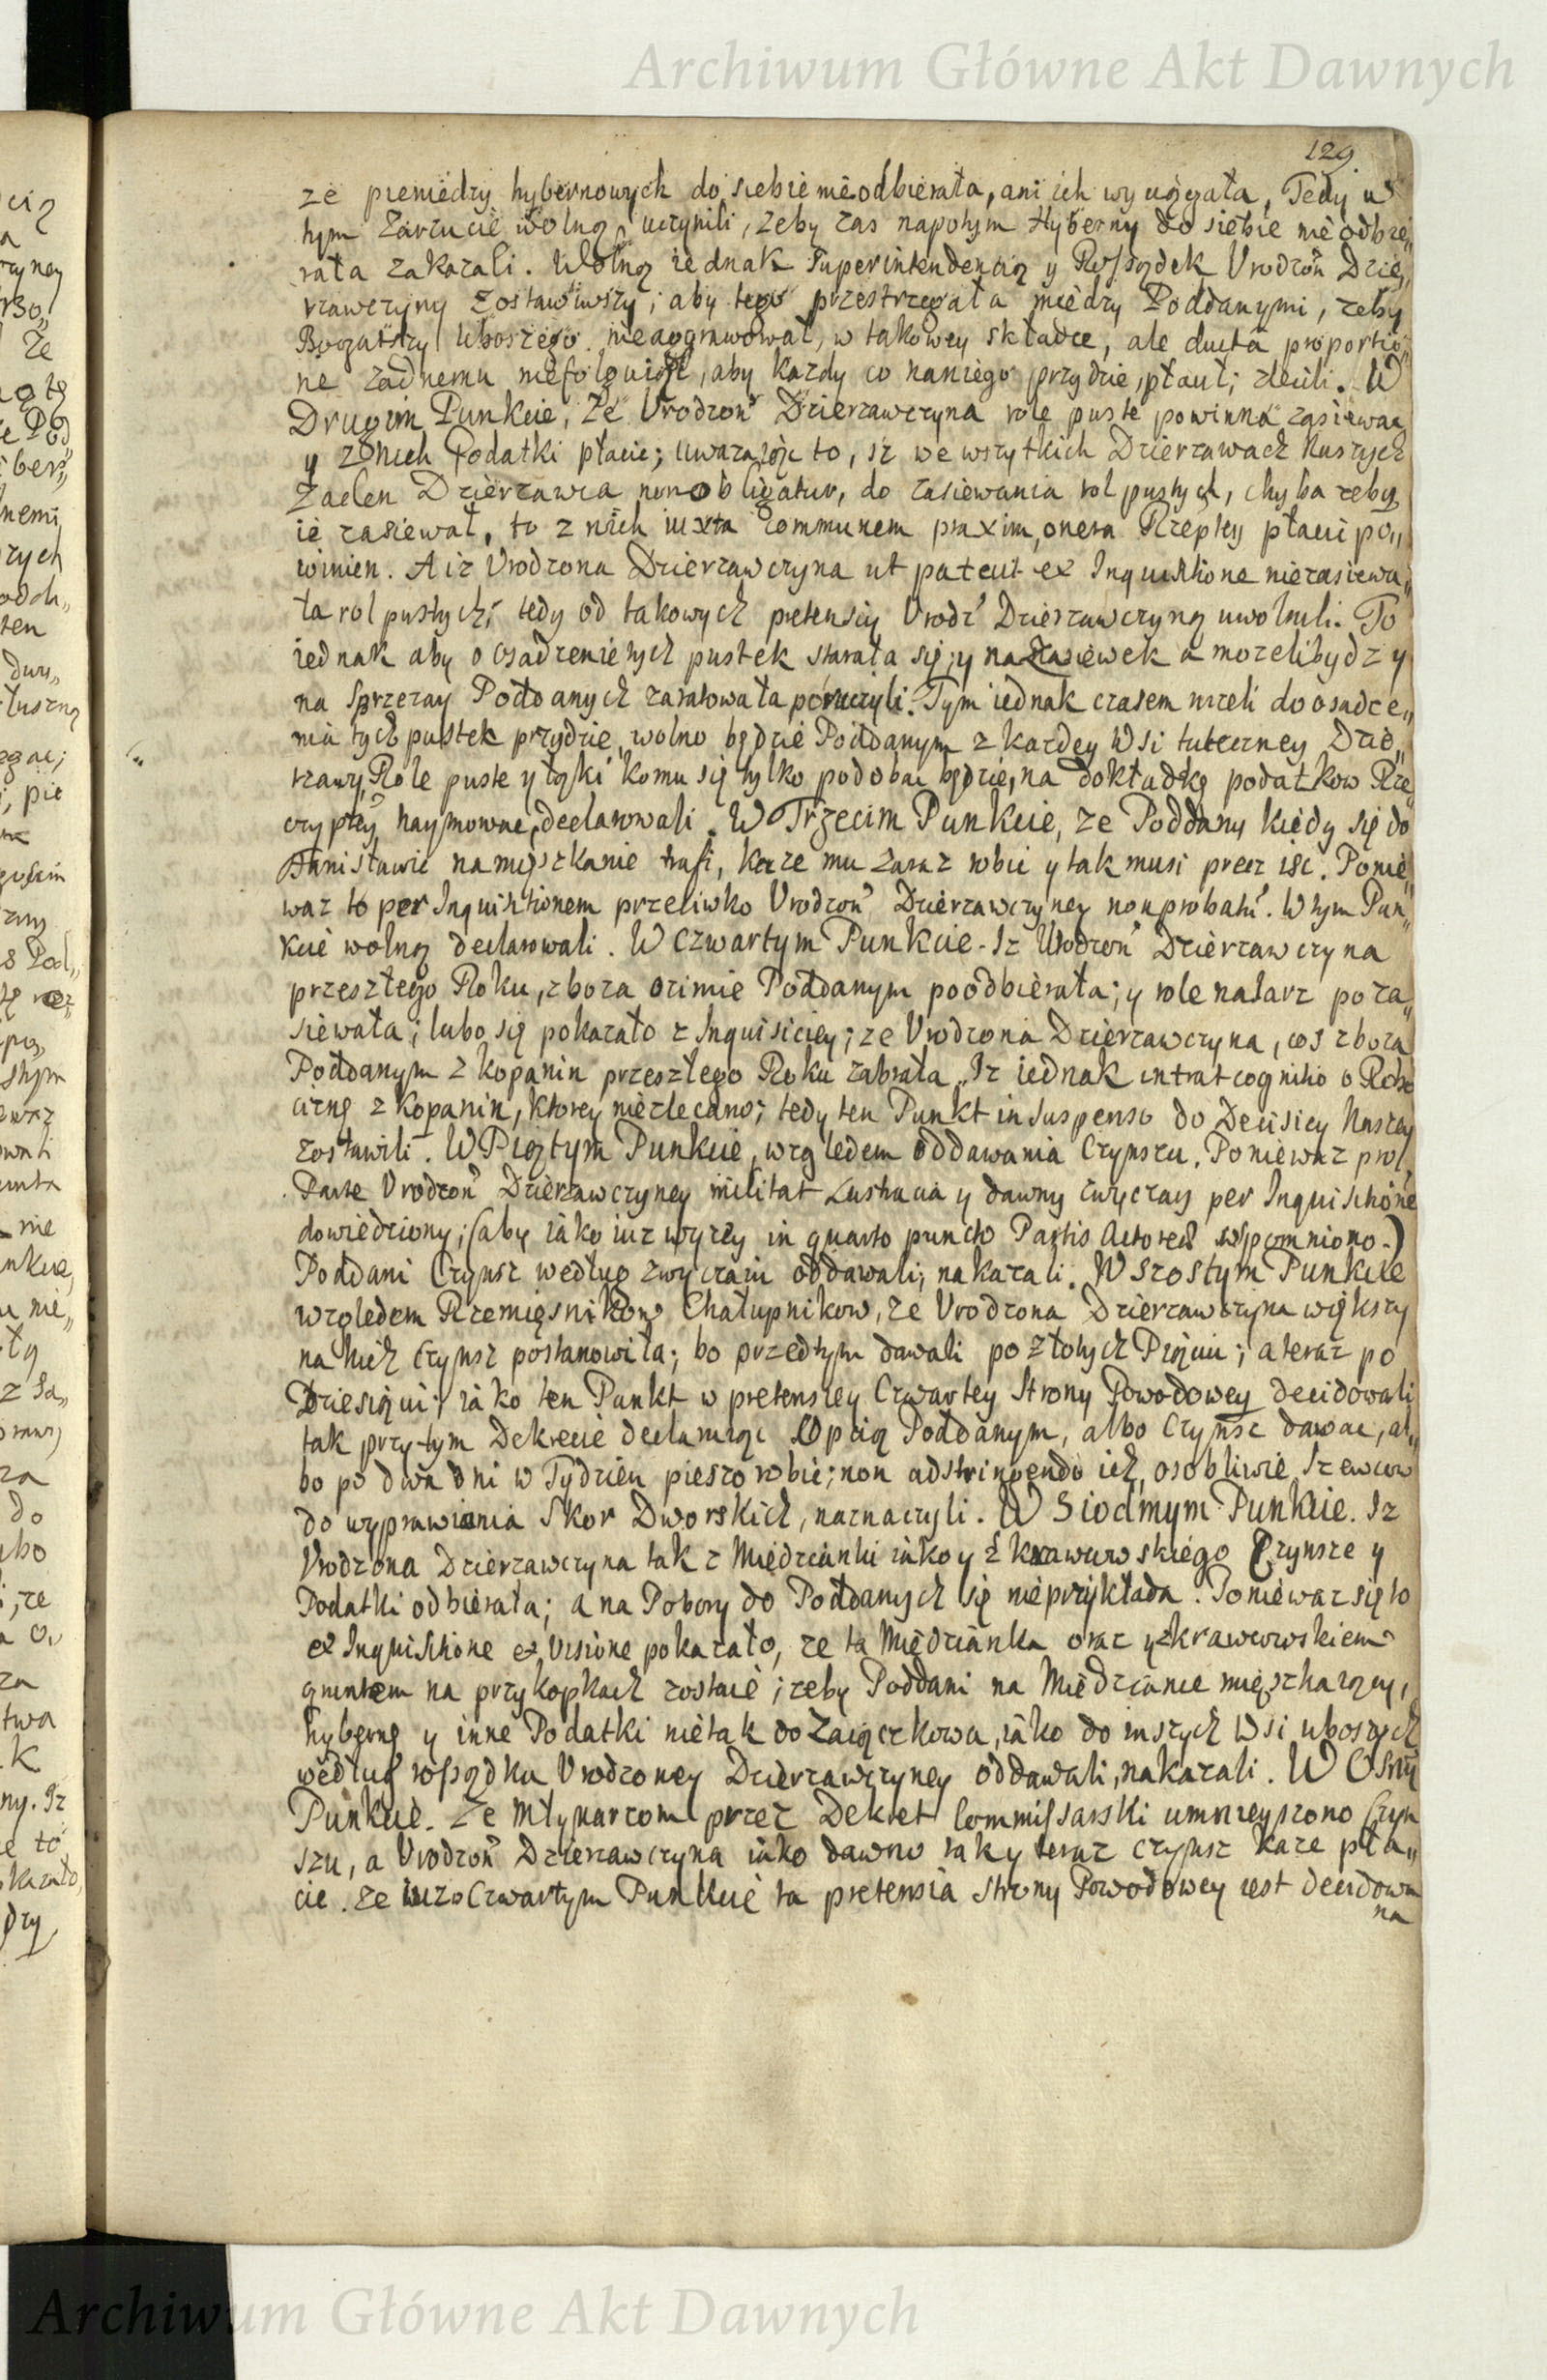 Archiwum Główne Akt Dawnych
129
ze pieniędzy hybernowych do siebie nieodbierała, ani ich wyciągała, Tedy w
tym Zarzucie wolną uczynili, zeby zas napotym Hyberny do siebie nie odbie„
rała zakazali. Wolną iednak Superintendencią y Rosządek Vrodzoń Dzier„
zawczyny zostawiwszy, aby tego przestrzegała między Poddanymi, zeby
Bogatszy Uboszego nieaggrawował, w takowey składce, ale ducta proportio„
ne zadnemu niefolguiąc, aby kazdy co naniego przydzie, płacił, zlecili. W
Drugim Punkcie, Ze Vrodzoń Dzierzawczyna role puste powinna zasiewac
y z Onych Podatki płacic; uwazaiąc to, iz we wszytkich Dzierzawach Naszych
Zaden Dzierzawca non obligatur, do zasiewania rol pustych, chyba zeby
ie zasiewał, to z nich iuxta communem praxim, onera Rzeptey płacic po„
winien. A iz Vrodzona Dzierzawczyna ut patent ex Inquisitione niezasiewa„
ła rol pustych, tedy od takowych pretensiy Vrodz Dzierzawczyną uwolnili. To
iednak aby o osadzenie tych pustek starała się, y na Zasiewek a mozelibydz y
na Sprzezay Poddanych zaratowała poruczyli. Tym iednak czasem nizeli do osadze„
nia tych pustek przydzie, wolno będzie Poddanym z kazdey Wsi tuteczney Dzie„
rzawy Role puste y łąki komu się tylko podobac będzie, na dokładkę podatkow Rze„
czyptey naymowac, declarowali. W Trzecim Punkcie, ze Poddany kiedy się do
Stanisławic namięszkanie trafi, kaze mu Zaraz robic y tak musi precz isc. Ponie„
waz to per Inquisitionem przeciwko Vrodzoń Dzierzawczyney nonprobatũ. W tym Pun„
kcie wolną declarowali. W Czwartym Punkcie. Iz Urodzoń Dzierzawczyna
przeszłego Roku, zboza ozimie Poddanym poodbierała; y role nasarz poza„
siewała; lubo się pokazało z Inquisiciey; ze Vrodzona Dzierzawczyna, cos zboza
Poddanym z kopanin przeszłego Roku zabrała, Iz iednak intrat cognitio o Robo
ciznę z kopanin, ktorey niezlecano; tedy ten Punkt in suspenso do Decisiey Naszey
zostawili. W Piątym Punkcie, względem oddawania Czynszu. Poniewaz pro
Parte Vrodzoń Dzierzawczyney militat Lustracia y dawny zwyczay per Inquisitione
dowiedziony; (aby iako iuz wyzey in quarto puncto Partis Actoreae wspomniono.)
Poddani Czynsz według zwyczaiu oddawali, nakazali. W Szostym Punkcie
względem Rzemięsnikow Chałupnikow, ze Vrodzona Dzierzawczyna większy
na Nich Czynsz postanowiła; bo przedtym dawali po złotych Piąciu; a teraz po
Dziesiąciu; iako ten Punkt w pretensiey Czwartey Strony Powodowey decidowali
tak przytym Dekrecie declaruiąc Opcią Poddanym, albo Czynsz dawac, al„
bo po dwa dni w Tydzien pieszo robic; non adstringendo ich, osobliwie Szewcow
do wyprawiania Skor Dworskich, naznaczyli. W Siodmym Punkcie. Iz
Vrodzona Dzierzawczyna tak z Miedzianki iako y z krawcowskiego Czynsze y
Podatki odbierała; a na Pobory do Poddanych się nieprzykłada. Poniewaz się to
ex Inquisitione et Visione pokazało, ze ta Miedzianka oraz y z krawcowskiem
gruntem na przykopkach zostaie; zeby Poddani na Miedziance mięszkaiący,
hybernę y inne Podatki nietak do Zaiączkowa, iako do inszych Wsi uboszych
według rosządku Vrodzoney Dzierzawczyney oddawali, nakazali. W Osmy
Punkcie. Ze Młynarzom przez Dekret Commissarski umnieyszono Czyn
szu, a Vrodzoń Dzierzawczyna iako dawno tak y teraz czynsz kaze pła„
cic. ze iuz o Czwartym Punkcie ta pretensia Strony Powodowey iest decidowa
na
Archiwum Główne Akt Dawnych